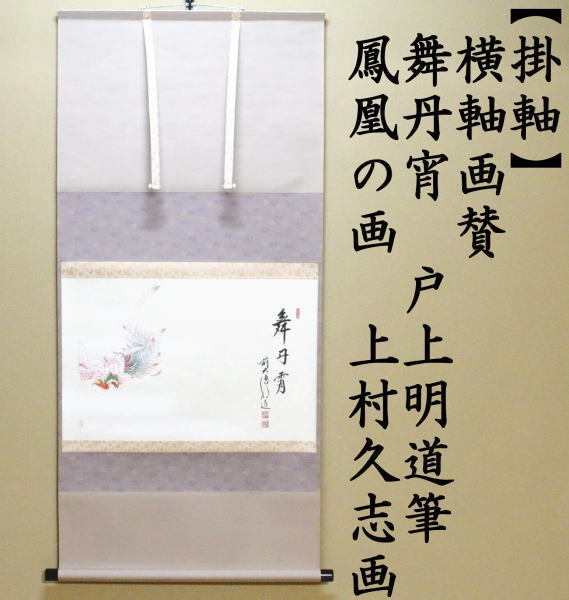 【掛軸】
横軸画賛
舞丹宵　戸上明道筆
鳳凰の画　上村久志画
舞丹霄